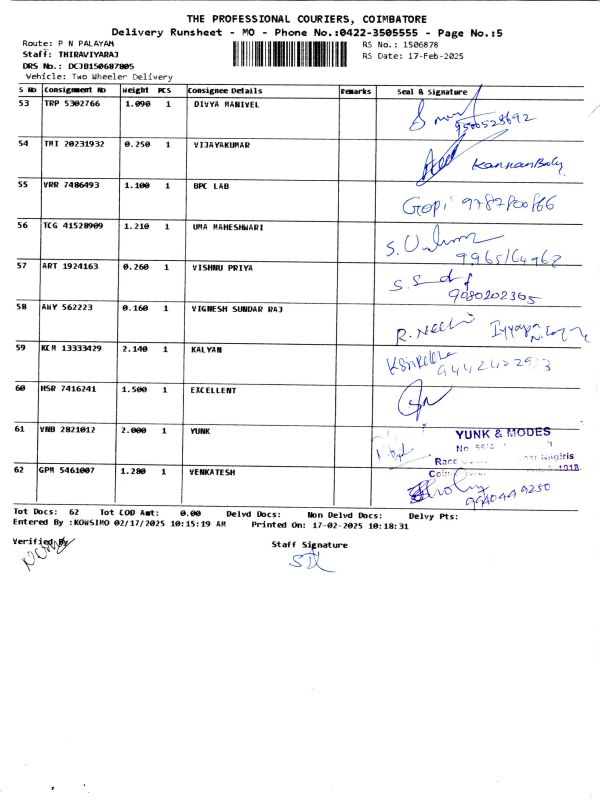 THE PROFESSIONAL COURIERS, COIMBATORE
Delivery Runsheet - MO - Phone No.:0422-3505555 - Page No.:5
Route: P N PALAYAM
RS No.: 1506878
Staff: THIRAVIYARAJ
RS Date: 17-Feb-2025
DRS No.: DCJB150687805
Vehicle: Two Wheeler Delivery
S No Consignment No Weight PCS Consignee Details Remarks Seal & Signature
53 TRP 5302766 1.090 1 DIVYA MANIVEL
9500528692
54 TMI 20231932 0.250 1 VIJAYAKUMAR
55 VRR 7486493 1.100 1 BPC LAB Gopi
56 TCG 41528909 1.210 1 UMA MAHESHWARI
57 ART 1924163 0.260 1 VISHNU PRIYA
9080202365
58 AWY 562223 0.160 1 VIGNESH SUNDAR RAJ
59 KCM 13333429 2.140 1 KALYAN
60 HSR 7416241 1.500 1 EXCELLENT
61 VNB 2821012 2.000 1 YUNK YUNK & MODES
No.
Race
62 GPM 5461007 1.280 1 VENKATESH
9940449250
Tot Docs: 62 Tot COD Amt: 0.00 Delvd Docs: Non Delvd Docs: Delvy Pts:
Entered By :KOWSIMO 02/17/2025 10:15:19 AM Printed On: 17-02-2025 10:18:31
Verified By
Staff Signature